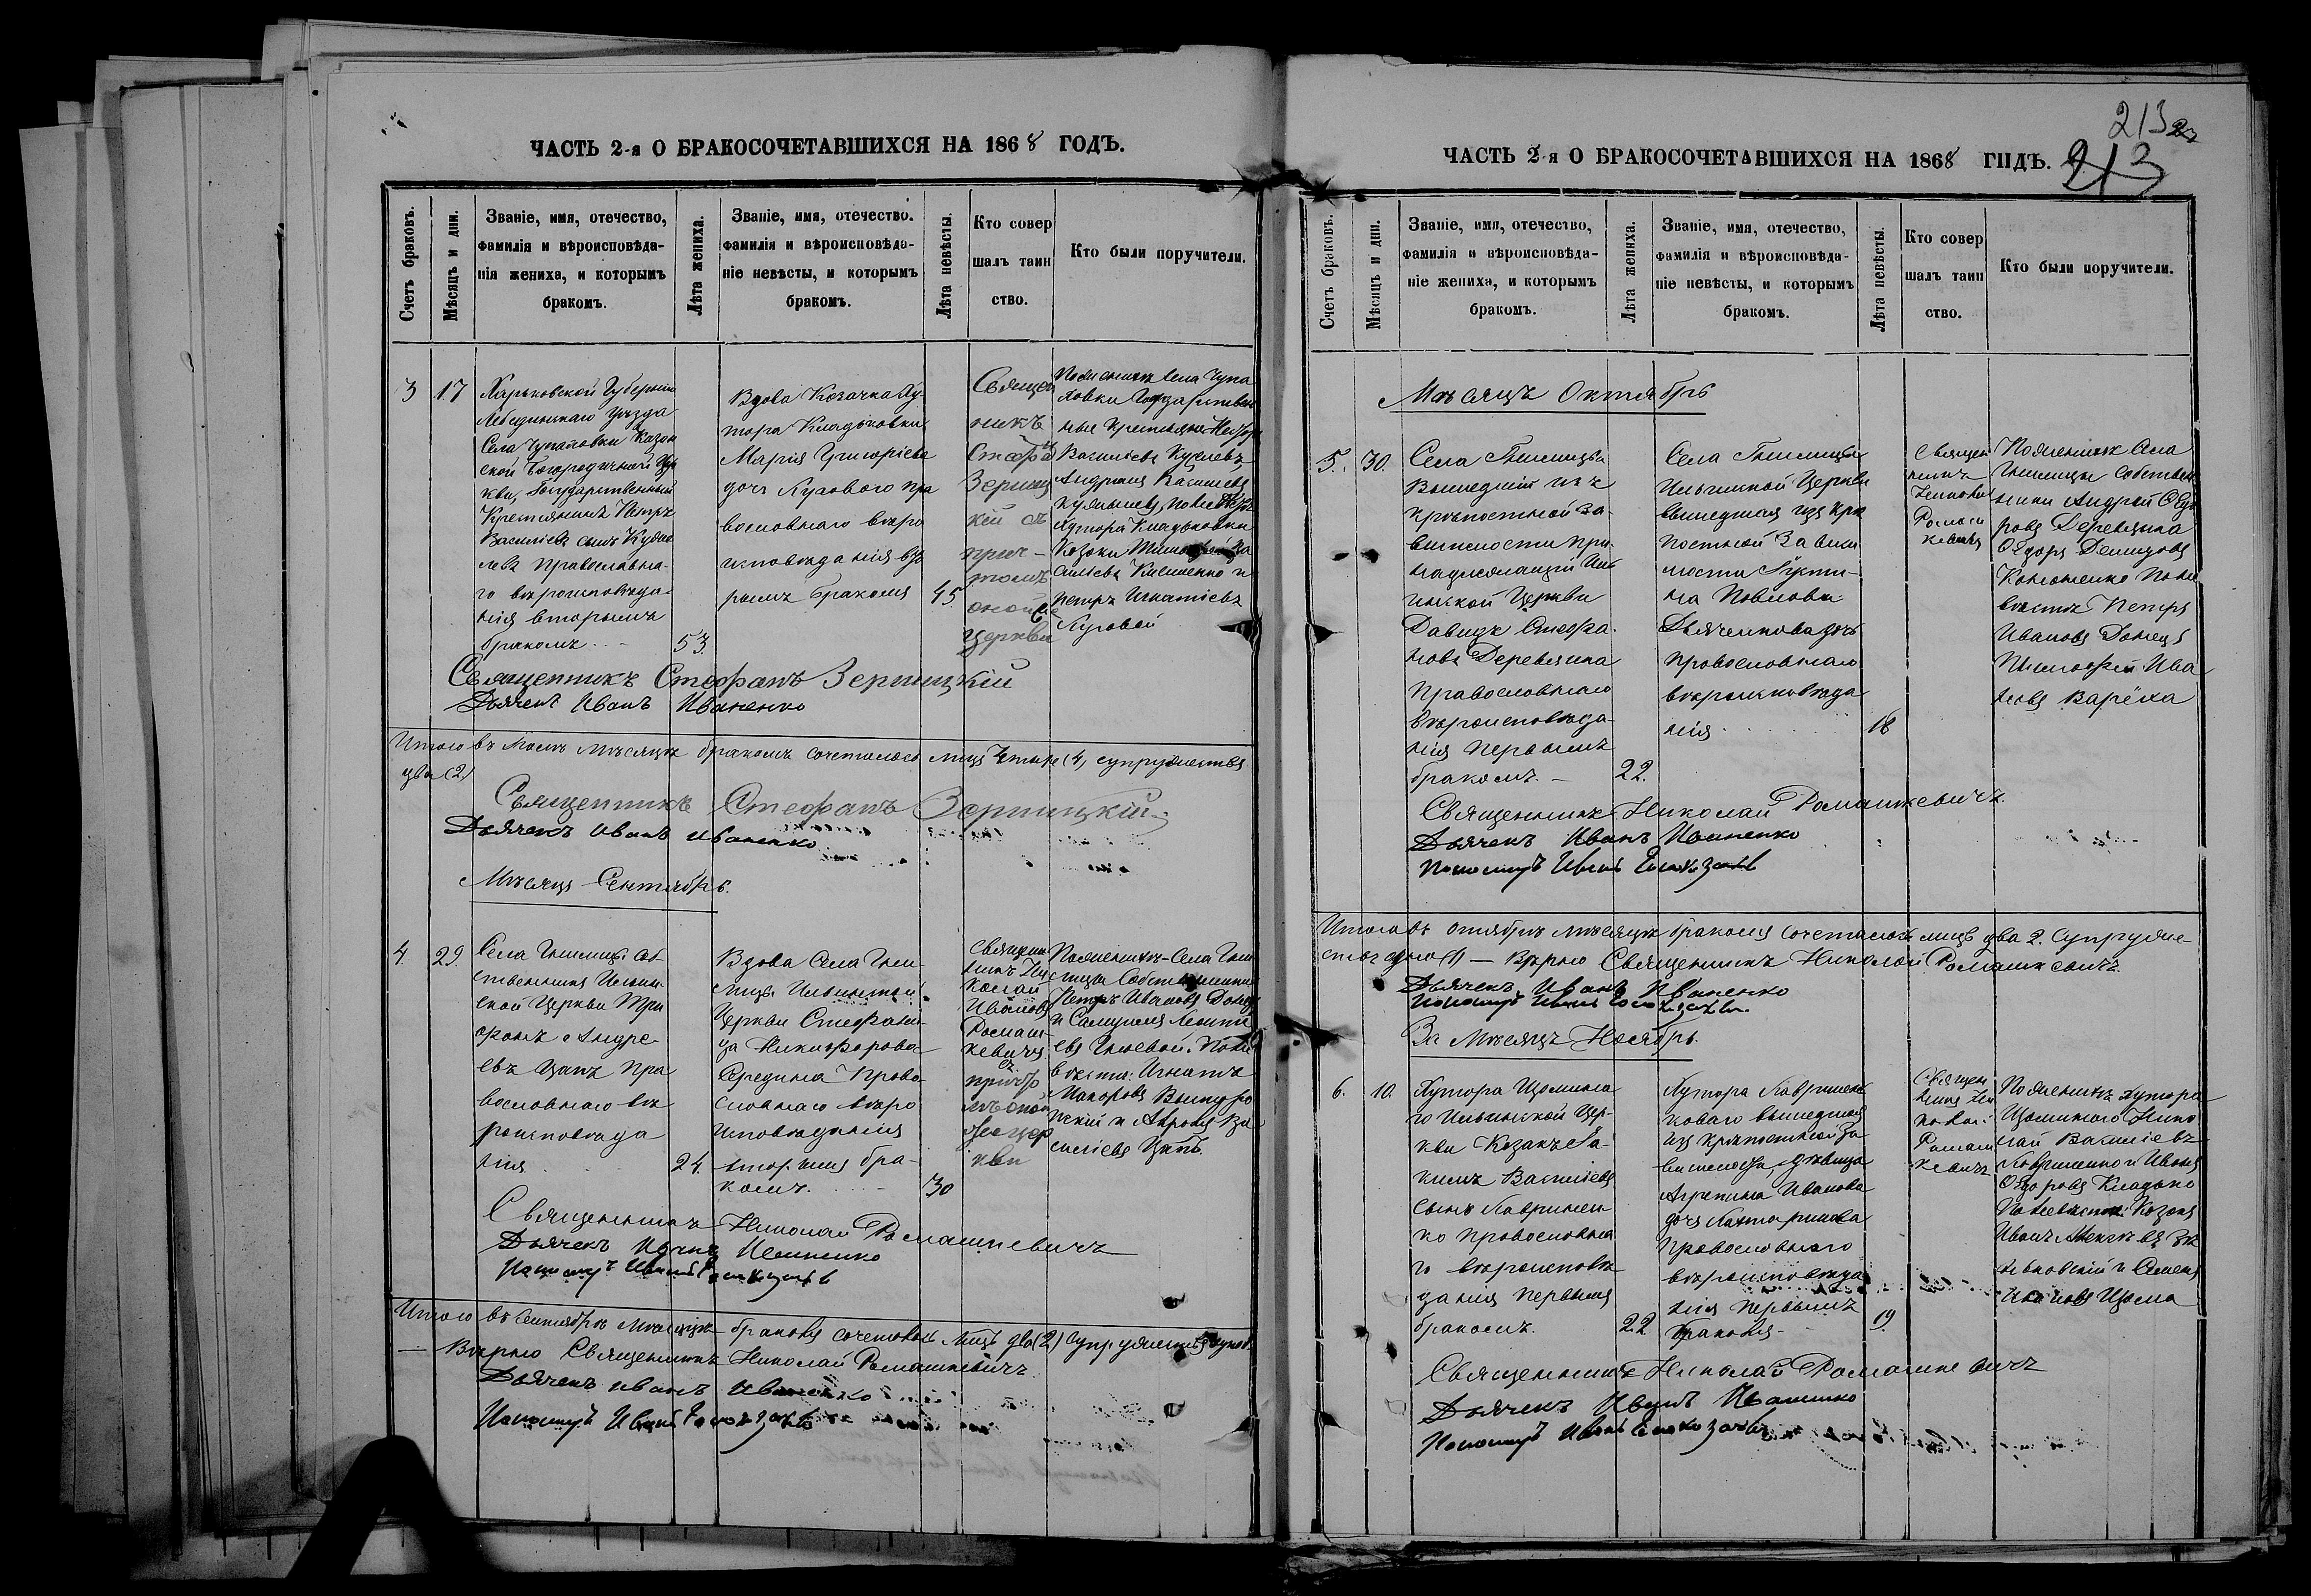 ЧАСТЬ 2-я О БРАКОСОЧЕТАВШИХСЯ НА 1868 ГОДЪ.
Счетъ браковъ.
Мѣсяцъ и дни.
Званіе, имя, отечество,
фамилія и вѣроисповѣда-
нія жениха, и которымъ
бракомъ.
Лѣта жениха.
Званіе, имя, отечество.
фамилія и вѣроисповѣда-
ніе невѣсты, и которымъ
бракомъ.
Лѣта невѣсты.
Кто совер
шалъ таин
ство.
Кто были поручители.
3
17
Харьковской Губерніи
Лебединскаго уѣзда
Села Чупаховки Казан
ской Богородичной Цер
кви, Государственный
Крестьянинъ Петръ
Василіевъ сынъ
православна-
го вѣроисповѣда-
нія вторымъ
бракомъ
53.
Вдова Козачка Ху-
тора Кладьковки
Марія Григоріева
дочь Лугового пра
вославнаго вѣро
исповѣданія вто
рымъ бракомъ
45.
Священ
никъ
Стефан
Зерниц
кій съ
прич-
томъ
оной
церкви
По женихѣ Села Чупа
ховки Государствен
ные Крестьяне
Василіевъ
Андрей Василіевъ
по невѣстѣ
Хутора Кладьковки
Козаки
Петръ Игнатіевъ
Луговой
Священникъ Стефанъ Зерницкій
Дьячекъ Иванъ Иваненко
Итого въ Маѣ мѣсяцѣ бракомъ сочеталось лицъ четыре (4) супружества
два (2)
Священникъ Стефанъ Зерницкій
Дьячекъ Иванъ Иваненко
Мѣсяцъ Сентябрь.
4.
29.
Села Гмыцы Соб
ственникъ Ильин
ской Церкви Три
фонъ Андре-
евъ Цапъ пра
вославнаго вѣ
роисповѣда
нія
24.
Вдова Села Гмы-
Ильинской
Церкви Стефани-
да Никифорова
Середина Право
славнаго вѣро
исповѣданія
вторымъ бра-
комъ.
30
Священ
никъ Ни
колай
Ивановъ
Ромаш-
кевичъ
съ
причто
мъ оной
же цер
кви
По женихѣ Села
Собственники
Петръ Ивановъ Донецъ
и
По не
вѣстѣ: Игнатъ
Макаровъ
и Ва
силіевъ Цапъ.
Священникъ Николай Ромашкевичъ
Дьячекъ Иванъ Иваненко
Пономарь Иванъ
Итого въ Сентябрѣ мѣсяцѣ бракомъ сочеталось лицъ два (2) супружество
Вѣрно Священникъ Николай Ромашкевичъ
Дьячекъ Иванъ Иваненко
Пономарь Иванъ
213
ЧАСТЬ 2-я О БРАКОСОЧЕТАВШИХСЯ НА 1868 ГПДЪ.
213
Счетъ браковъ.
Мѣсяцъ и дни.
Званіе, имя, отечество,
фамилія и вѣроисповѣда-
ніе жениха, и которымъ
бракомъ.
Лѣта жениха.
Званіе, имя, отечество,
фамилія и вѣроисповѣда-
ніе невѣсты, и которымъ
бракомъ.
Лѣта невѣсты.
Кто совер
шалъ таин
ство.
Кто были поручители.
Мѣсяцъ Октябрь
5.
30.
Села
Вышедшій изъ
крѣпостной за-
висимости при-
надлежащій Иль
инской Церкви
Давидъ Стефа-
новъ Деревянка
Православнаго
вѣроисповѣда-
нія первымъ
бракомъ.
22.
Села
Ильинской Церкви
вышедшая изъ крѣ
постной зависи
мости
Павлова
Дьяченкова дочь
православнаго
вѣроисповѣда
нія
18
Священ
никъ
Николай
Ромаш
кевичъ
По женихѣ Села
Собствен
ники Андрей Ѳедо
ровъ Деревянка
Ѳедоръ Демидовъ
Кононенко по не
вѣстѣ Петръ
Ивановъ Донецъ
Тимофей Ива
новъ Варёха
Священникъ Николай Ромашкевичъ.
Дьячекъ Иванъ Иваненко
Пономарь Иванъ
Итого въ Октябрѣ мѣсяцѣ бракомъ сочеталось лицъ два 2. Супруже-
ство одно (1) — Вѣрно Священникъ Николай Ромашкевичъ.
Дьячекъ Иванъ Иваненко
Пономарь Иванъ
За Мѣсяцъ Ноябрь.
6.
10.
Хутора
го Ильинской Цер-
кви Козакъ Іа-
кимъ Василіевъ
сынъ Лавринен-
ко Православна
го вѣроисповѣ
данія первымъ
бракомъ.
22.
Хутора Лавринен
коваго вышедшая
изъ крѣпостной за
висимости, дѣвица
Агрепина Иванова
дочь
Православнаго
вѣроисповѣда
нія первымъ
бракомъ
19.
Священ
никъ Ни
колай
Ромаш
кевичъ
По женихѣ Хутора
Нико
лай Василіевъ
Лавриненко и Иванъ
Ѳедоровъ Кладько
По невѣстѣ Козаки
Иванъ
и Семенъ
Священникъ Николай Ромашкевичъ
Дьячекъ Иванъ Иваненко
Пономарь Иванъ